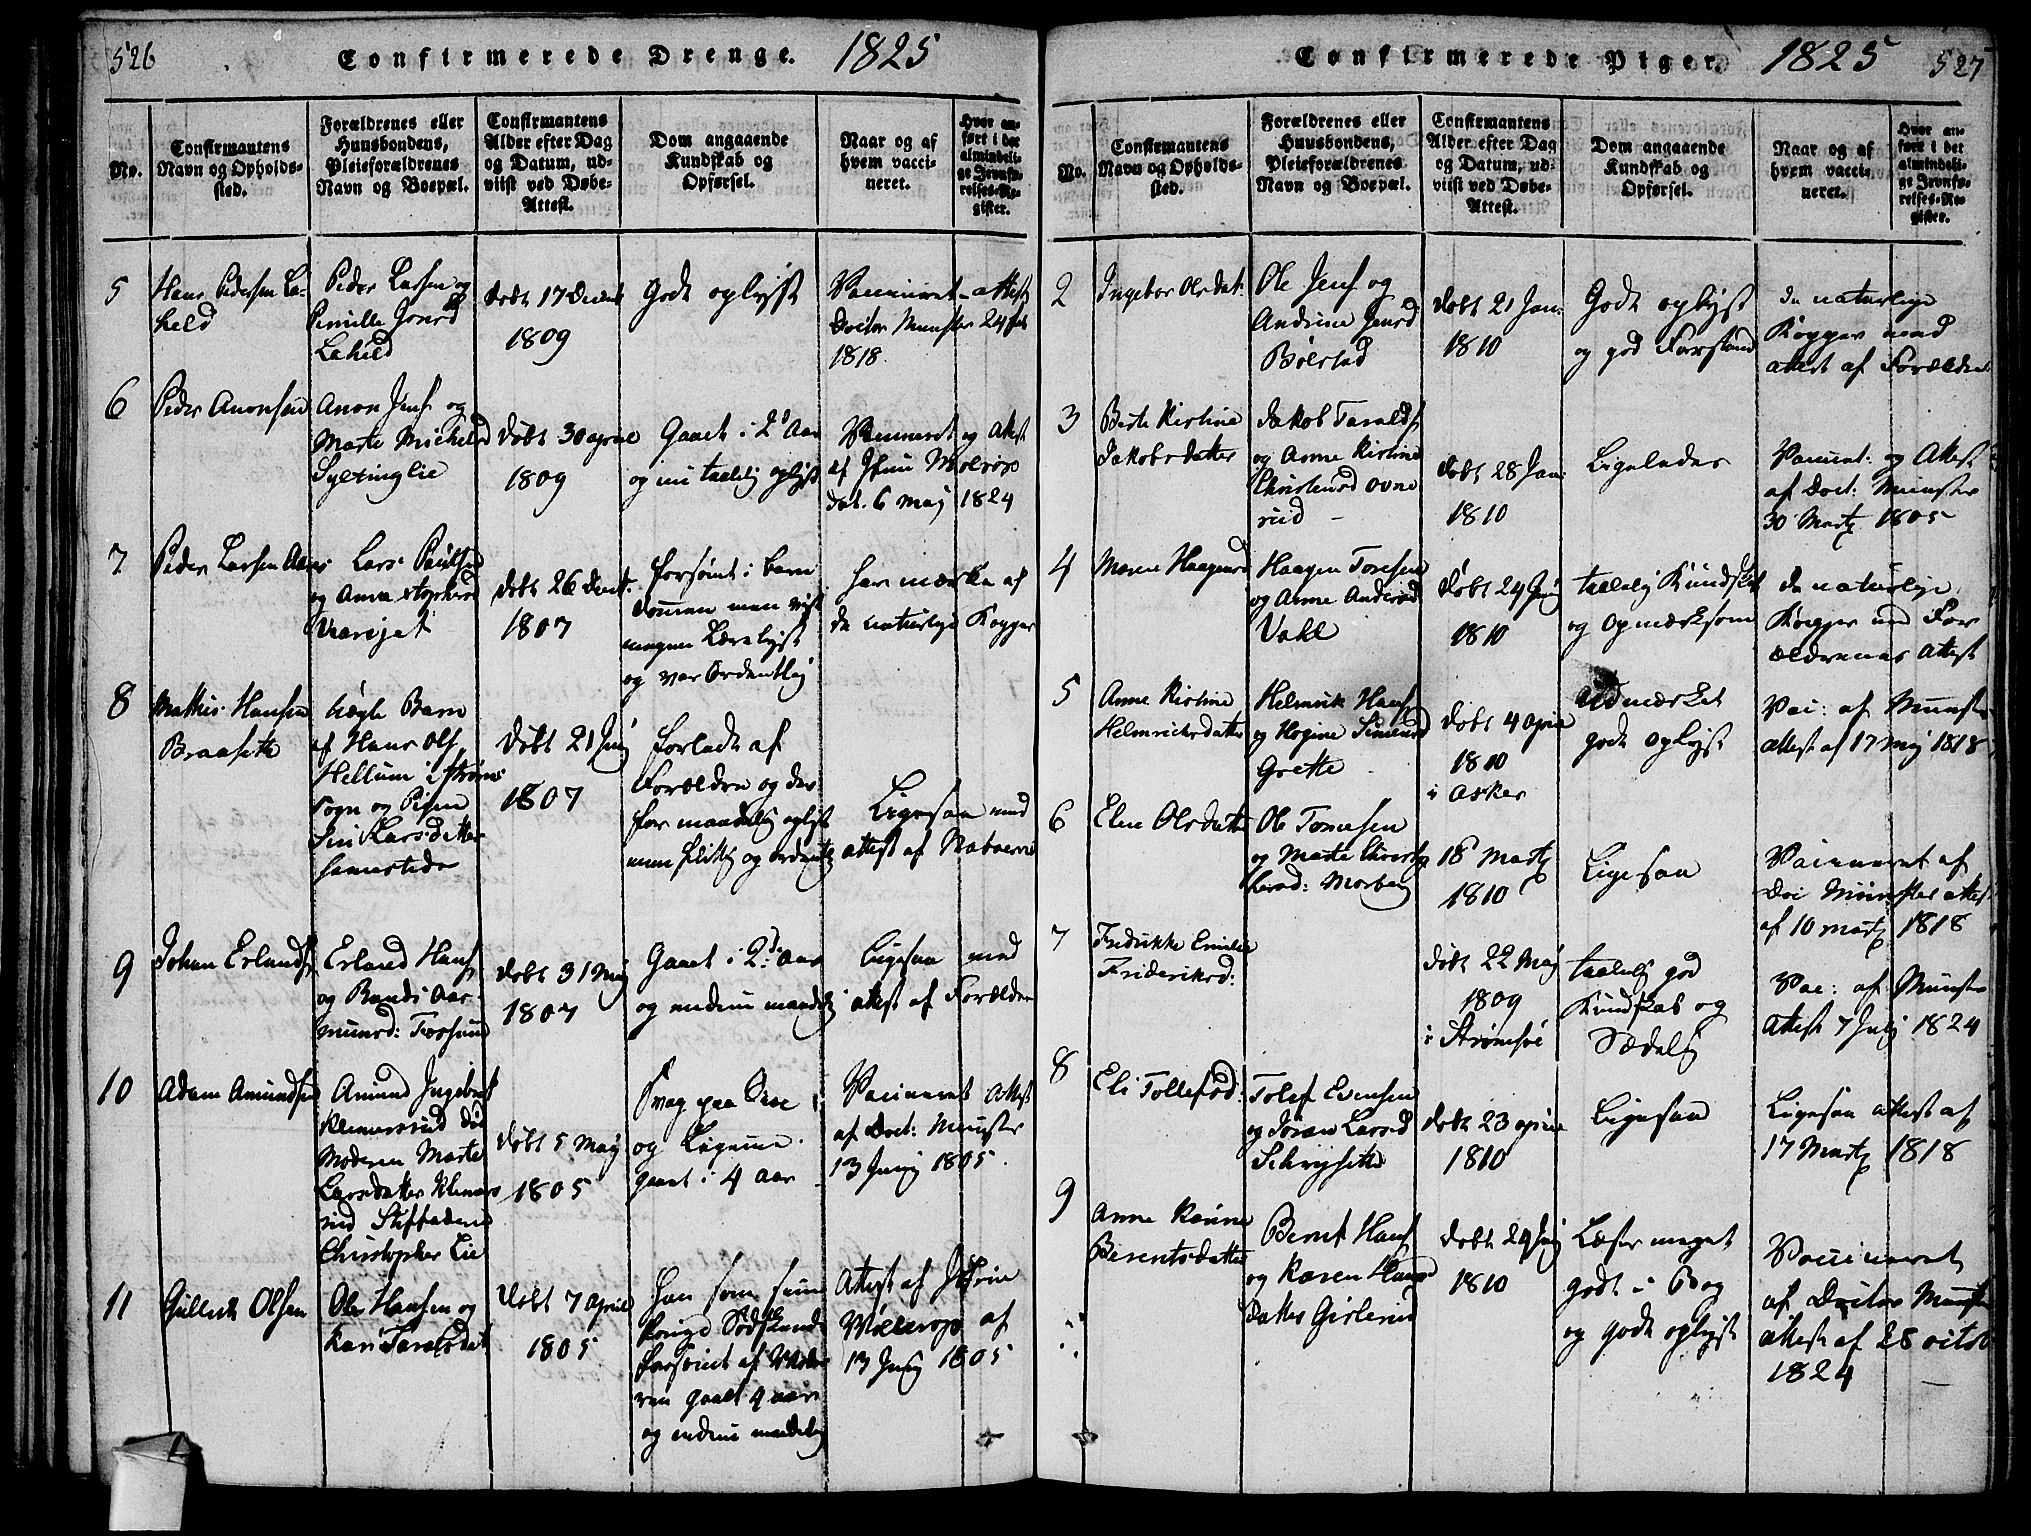 526
Confirmerede Drenge. 1825
No.
Confirmantens
Navn og Opholds-
sted.
Forældrenes eller
Huusbondens,
Pleieforældrenes
Navn og Boepæl.
Confirmantens
Alder efter Dag
og Datum, ud-
viist ved Døbe-
Attest.
Dom angaaende
Kundskab og
Opførsel.
Naar og af
hvem vacci-
neret.
Hvor an-
ført i det
almindeli-
ge Jevnfø-
relses-Re-
gister.
5
Hans Pedersen La-
held
Peder Larsen og
Pernille Jonsd
Lahild
døbt 17 Decemb
1809
Godt oplyst
Vaccineret - attest
Doctor Munster 24 feb
1818.
6
Peder Anonsen
Anon Jens og
Marte Michelsd
døbt 30 april
1809
Gaaet i 2d Aar
og nu taalelig oplyst
Vaccineret og Attest
af
dat. 6 maj 1824
7
Peder Larsen
Lars Paulsen
og Anna
døbt 26 Decemb.
1807
forsømt i barn
dommen men vist
megen Lærelyst
og var Ordentlig
har mærker af
de naturlige Kopper
8
Mathis Hansen
Braasette
Uægte Barn
af Hans Ols
Hellum i Strøms
Sogn og Pigen
Siri Larsdatter
sammesteds
døbt 21 Junj
1807
forladt af
Forældre og der
for maadelig oplyst
men flittig og ordentlig
Ligesaa med
attest af Naboerne
9
Johan Erlands
Erland Hans
og Randi Aa-
munsd: Fossum
døbt 31 Maj
1807
Gaaet i 2d Aar
og endnu maadelig
Ligesaa med
attest af Forældre
10
Adam Amundsen
Amund Ingebret
Klemersrud død
Moderen Marte
Larsdatter Klemers
rud Stiffaderen
Christopher Lie
døbt 5 Maj
1805
Svag paa Siel
og Legeme
gaaet i 4 aar
Vaccineret Attest
af Doct: Munster
13 Junj 1805.
11
Gullich Olsen
Ole Hansen og
Kari Taralsdat
døbt 7 april
1805
han som sine
øvrige Sødskende
forsømt af
gaaet 4 aar
og endnu maadelig
Attest af
af
13 Junj 1805
Confirmerede Piger. 1825
527
No.
Confirmantens
Navn og Opholds-
sted.
Forældrenes eller
Huusbondens,
Pleieforældrenes
Navn og Boepæl.
Confirmantens
Alder efter Dag
og Datum, ud-
viist ved Døbe-
Attest.
Dom angaaende
Kundskab og
Opførsel.
Naar og af
hvem vacci-
neret.
Hvor an-
ført i det
almindeli-
ge Jevnfø-
relses-Re-
gister.
2
Ingebor Olsdat:
Ole Jens og
Andrine Jensd
Bølstad
døbt 21 Jan:
1810
Godt oplyst
og god Forstand
de naturlige
Kopper med
attest af Forældre
3
Berte Kirstine
Jakobsdatter
Jakob Taralds
og Anne Kirstine
Christensd Ovne
rud -
døbt 28 Jan:
1810
Ligeledes
Vaccinet: og Attest
af Doct: Munster
30 Martz 1805
4
Maren Haagensd
Haagen Toresen
og Anne Andersd
døbt 24 Junj
1810
taalelig Kundskab
og Opmærksom
de naturlige
Kopper med For
ældrenes Attest
5
Anne Kirstine
Helmrichsdatter
Helmrik Hans
og Hogine Simensd
Grette
døbt 4 april
1810
i Asker
Udmærket
godt oplyst
Vac: af Munster
attest af 17 maj 1818
6
Elene Olsdatter
Ole Tomesen
og Marte
Morberg
18 Martz
1810
Ligesaa
Vaccineret af
Doc Münster attest
af 10 martz 1818
7
Fredrikke Emilie
Frideriksd:
døbt 22 Maj
1809
i Strømsøe
taalelig god
Kundskab og
Sædelig
Vac: af Munster
Attest 7 Julj 1824
8
Eli Tollefsd:
Tolef Evensen
og Joran Larsd
døbt 23 april
1810
Ligesaa
Ligesaa attest af
17 Martz 1818
9
Anne Karine
Berentsdatter
Bernt Hans
og Karen Hans
datter Gislerud
døbt 29 Junj
1810
Læser meget
godt i Bog
og godt oplyst
Vaccineret
af Doctor Munster
attest af 28 octob
1824